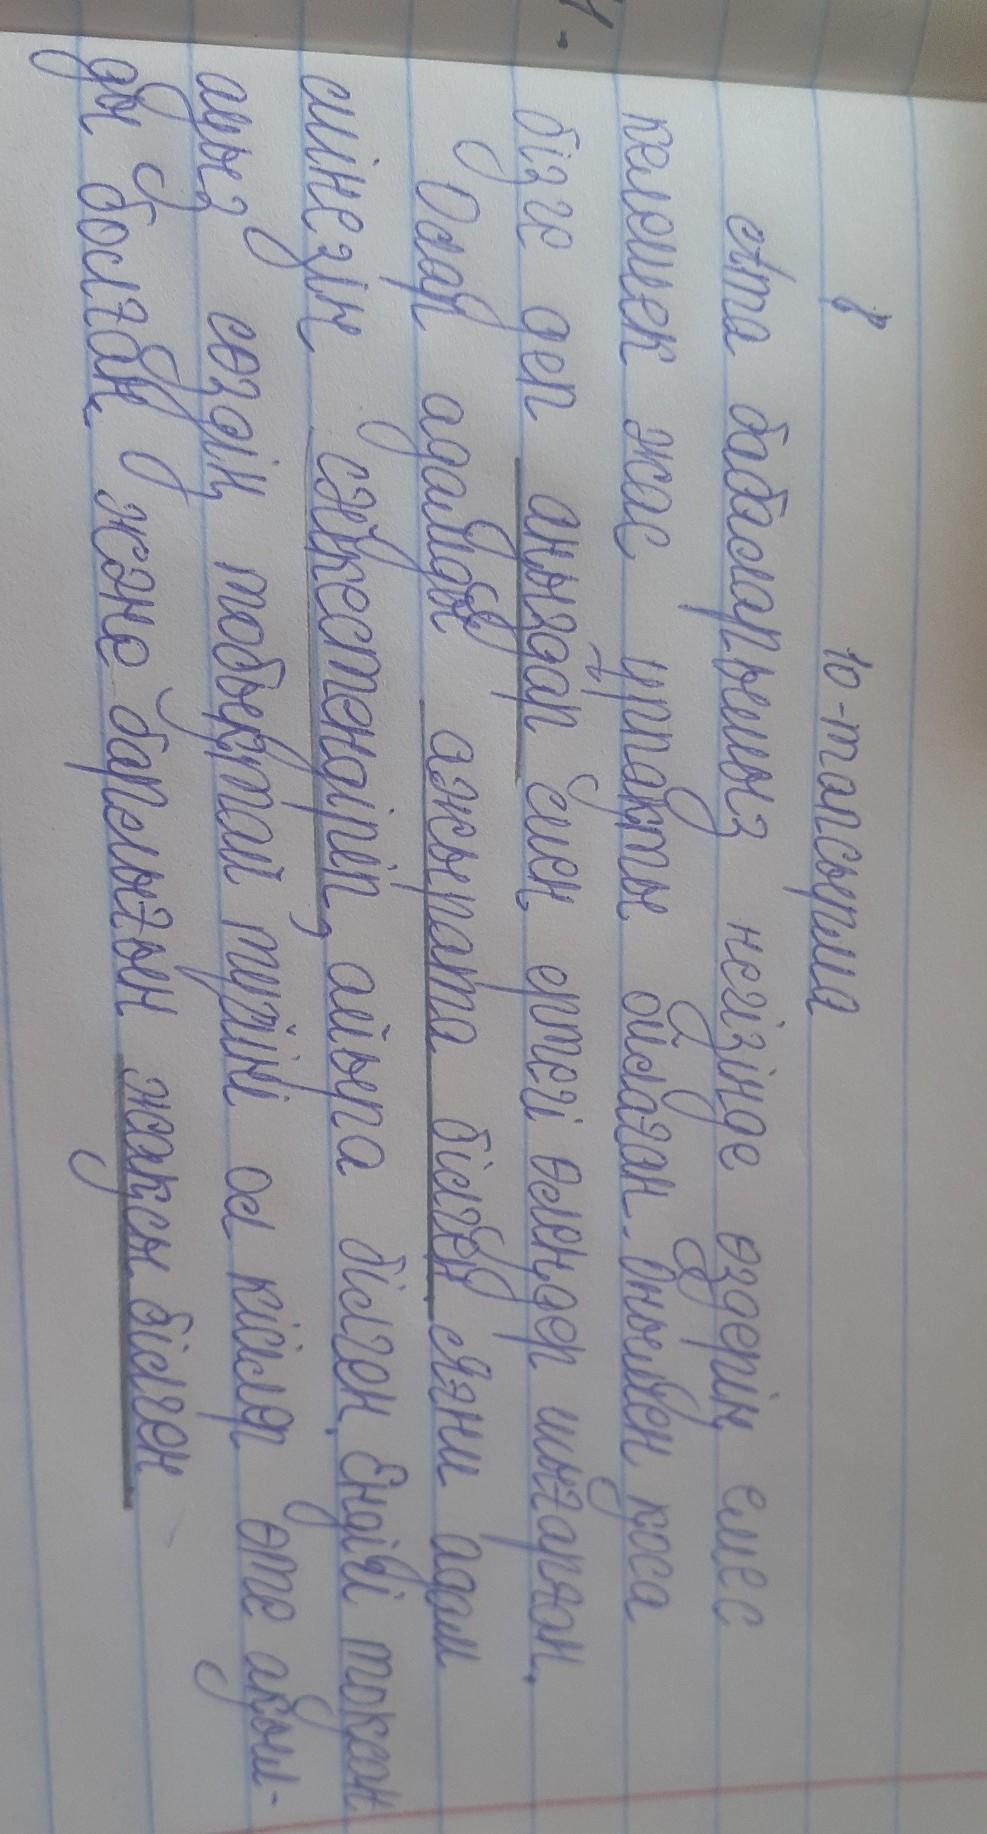 10-тапсырма
Ата бабаларымыз негізінде өздерің емес
келешек жас ұрпақты ойлаған. Онымен қоса
бізге деп аңыздар емен, ертегі өлеңдер шығарған.
Олар адамды ажырата білген яғни адам
мінезін сәйкестендіріп, айыра білген. Ендігі тоқсан
ауыз сөздің тобықтай түйіні ол кісілер өте ақыл-
ды болған және барлығын жақсы білген